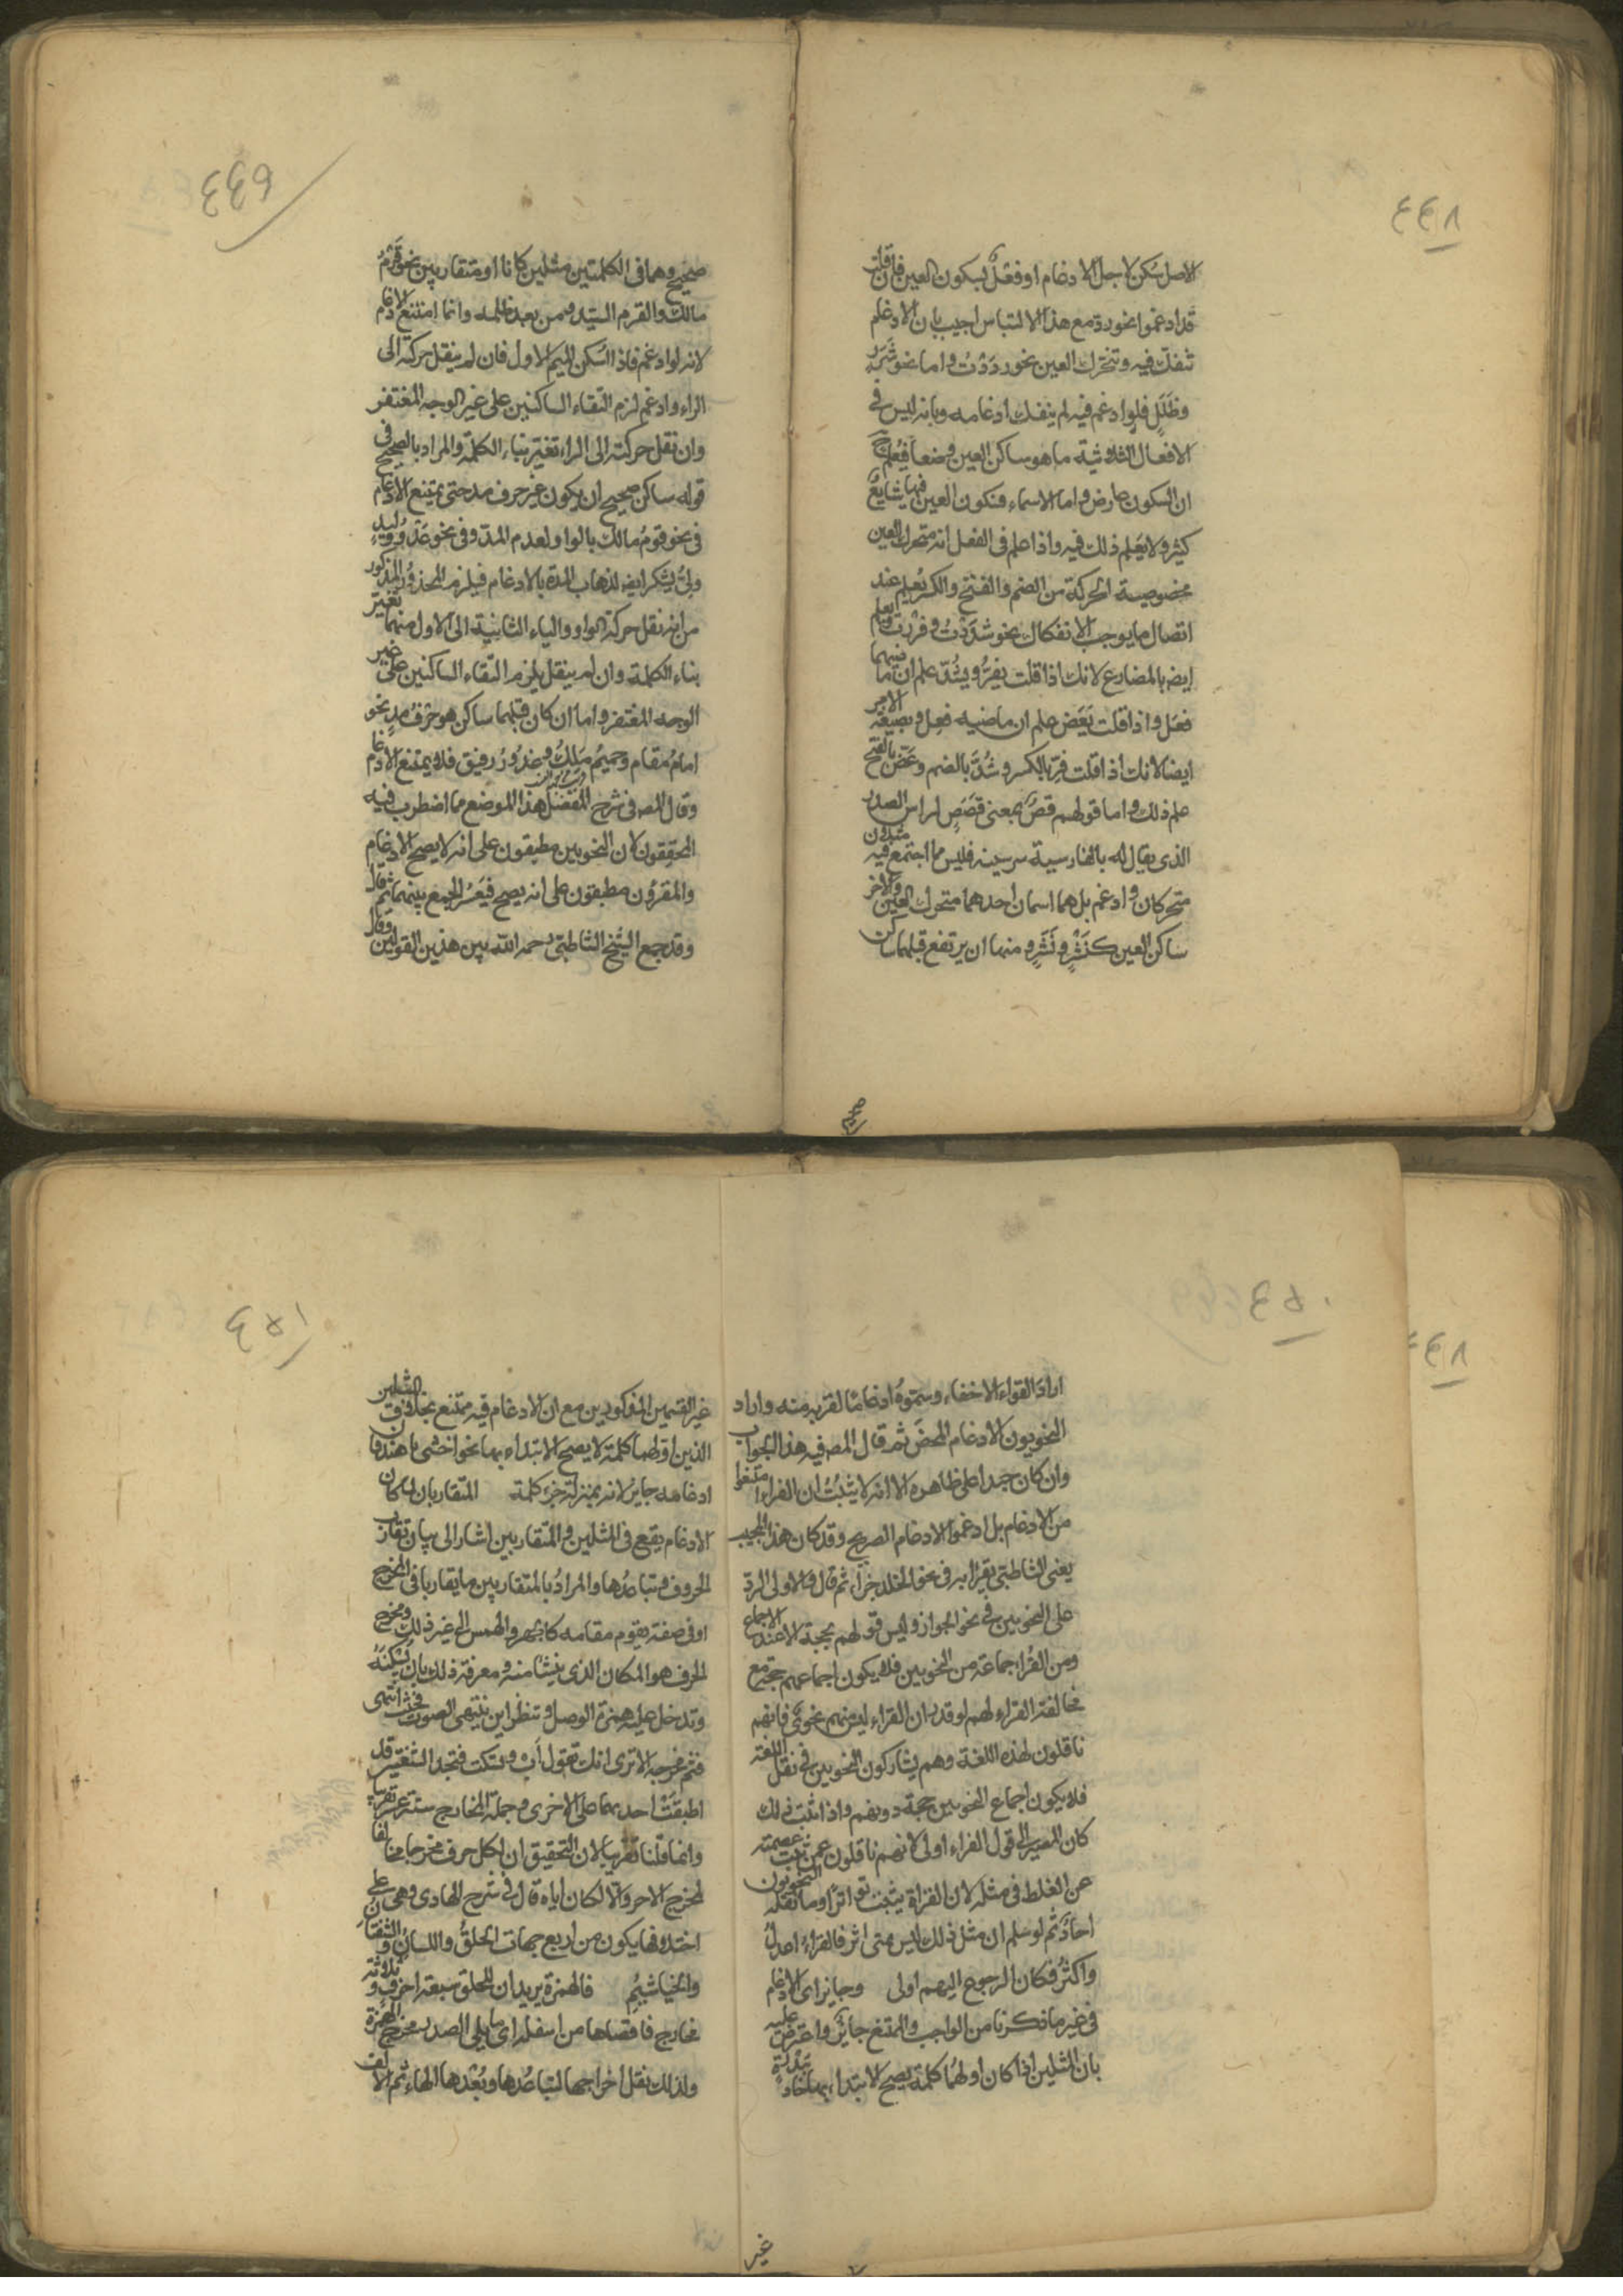 ٤٤٨
الاصل سكن لاجل الادغام او فعْل بسكون العين فان قلت
قد ادغموا نحو ردّ مع هذا الالتباس اجيب بان الادغام
تنفك فيه وتتحرك العين نحو رددْتُ واما نحو شَرَرٍ
وظَلَلٍ فلو ادغم فيه لم ينفك ادغامه وبانه ليس في
الافعال الثلاثية ما هو ساكن العين وضعا فيُعلم
ان السكون عارض واما الاسماء فسكون العين فيها شايع
كثير ولا يَعلم ذلك فيه واذا علم في الفعل انه متحرك العين
مخصوصية الحركة من الضم والفتح والكسر يُعلم عند
اتصال ما يوجب الانفكاك نحو شدَدْتُ وفررت ويعلم
ايضه بالمضارع لانك اذا قلت يفِرُّ ويشُدّ علم ان ماضيهما
فعَل واذا قلت يَعَض علم ان ماضيه فعِل وبصيغة الامر
ايضا لانك اذا قلت فرّ بالكسر وشُدَّ بالضم وعَضّ بالفتح
علم ذلك واما قولهم قصّ بمعنى قصَصٍ لراس الصدر
الذى يقال له بالفارسية سر سينه فليس مما اجتمع فيه مثلان
متحركان وادغم بل هما اسمان احدهما متحرك العين والاخر
ساكن العين كنَشْرٍ ونَشَرٍ ومنها ان يرتفع قبلهما ساكن
صحيح
٤٤٩
صحيح وهما في الكلمتين مثلين كانا او متقاربين نحو قَرْمُ
مالك والقرم السيد ومن بعد ظلمه وانما امتنع الادغام
لانه لو ادغم فاذا اسكن الميم الاول فان لم ينقل حركته الى
الراء وادغم لزم التقاء الساكنين على غير الوجه المغتفر
وان نقل حركته الى الراء تغير بناء الكلمة والمراد بالصحيح في
قوله ساكن صحيح ان يكون غير حرف مد حتى يمتنع الادغام
في نحو قومُ مالك بالواو لعدم المدّ وفي نحو عَدُوّ وليدٍ
وليُّ يشكر ايضه لذهاب المدة بالادغام فيلزم المحذور المذكور
من انه نقل حركة الواو والياء الثانية الى الاول منهما تغير
بناء الكلمة وان لم ينقل يلزم التقاء الساكنين على غير
الوجه المغتفر واما ان كان قبلهما ساكن هو حرف مدٍ نحو
امامُ مقام وحميمُ مَلِكٍ وصدُورُ رفيق فلا يمتنع الادغام
وقال المصه في شرح المفصل هذا الموضع مما اضطرب فيه
المحققون لان النحويين مطبقون على انه لا يصح الادغام
والمقرؤن مطبقون على انه يصح فيَعْسُر الجمع بينهما ثم قال
وقد جمع الشيخ الشاطبى رحمه الله بين هذين القولين وقال
٤٥٠
اراد القراء الاخفاء وسمّوهُ ادغامًا لقربه منه واراد
النحويون الادغام المحض ثم قال المصه فيه هذا الجواب
وان كان جيدا على ظاهره الا انه لا يثبتُ ان القراء امتنعوا
من الادغام بل ادغموا الادغام الصريح وقد كان هذا المجيب
يعنى الشاطبى يقرأ به في نحو الخلد جزاء ثم قال والاولى الردّ
على النحويين في نحو الجواز وليس قولهم بحجة الا عند الاجماع
ومن القُراء جماعة من النحويين فلا يكون اجماعهم حجة مع
مخالفة القراء لهم لو قدر ان القراء ليس منهم نحوىّ فانهم
ناقلون لهذه اللغة وهم يشاركون النحويين في نقل اللغة
فلا يكون اجماع النحويين حجة دونهم واذا ثبت ذلك
كان المصير الى قول القراء اولى لانهم ناقلون عمن ثبت عصمته
عن الغلط في مثله لان القراءة يثبت تواترًا وما نقله النحويون
احادٌ ثم لو سلم ان مثل ذلك ليس بمتواتر فالقراءُ اعدلُ
واكثرُ فكان الرجوع اليهم اولى وجايز اى الادغام
في غير ما ذكرنا من الواجب والممتنع جايز واعترض عليه
بان المثلين اذا كان اولهُما كلمة يصح لابتداء بها
غير
٤٥١
غير القسمين المذكورين مع ان الادغام فيه ممتنع بخلاف المثلين
الذين اولهما كلمة لا يصح الابتداء بها نحو اخشى يا هند فان
ادغامه جايز لانه بمنزلة جزء كلمة المتقاربان لما كان
الادغام يقع في المثلين والمتقاربين اشار الى بيان تقارب
الحروف وتباعُدها والمرادُ بالمتقاربين ما يقاربا في المخرج
او في صفة يقوم مقامه كالجهر والهمس الى غير ذلك ومخرج
الحرف هو المكان الذى ينشأ منه ومعرفة ذلك بان تُسكنَهُ
وتدخل عليه همزة الوصل وتنظر اين ينتهى الصوت فحيث انتهى
فثم مخرجه الا ترى انك تقول أب وتسكت فتجد الشفتين قد
اطبقَتْ احديهما على الاخرى وجملة المخارج ستة عشر تقريبا
وانما قلنا تقريبا لان التحقيق ان لكل حرف مخرجا مخالفا
لمخرج الاخر والا لكان اياه قال في شرح الهادى وهى على
اختلافها يكون من اربع جهات الحلقُ واللسانُ والشفتان
والخياشيمُ فالهمزة يريد ان للحلق سبعة احرف و ثلاثة
مخارج فاقصاها من اسفله اى ما يلى الصدر مخرج الهمزة
ولذلك نقل اخراجها لتباعُدها وبُعْدها الهاء ثم الالف